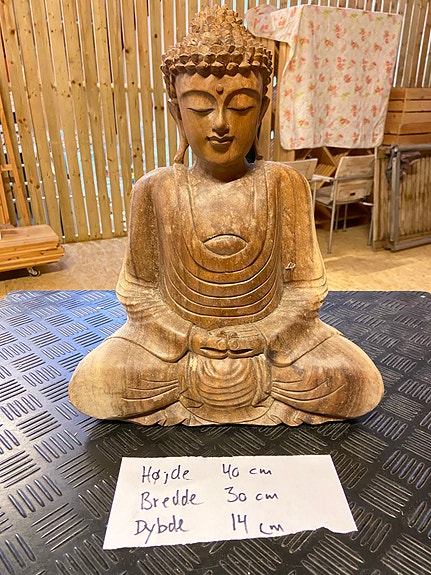 Højde 40 cm
Bredde 30 cm
Dybde 14 cm